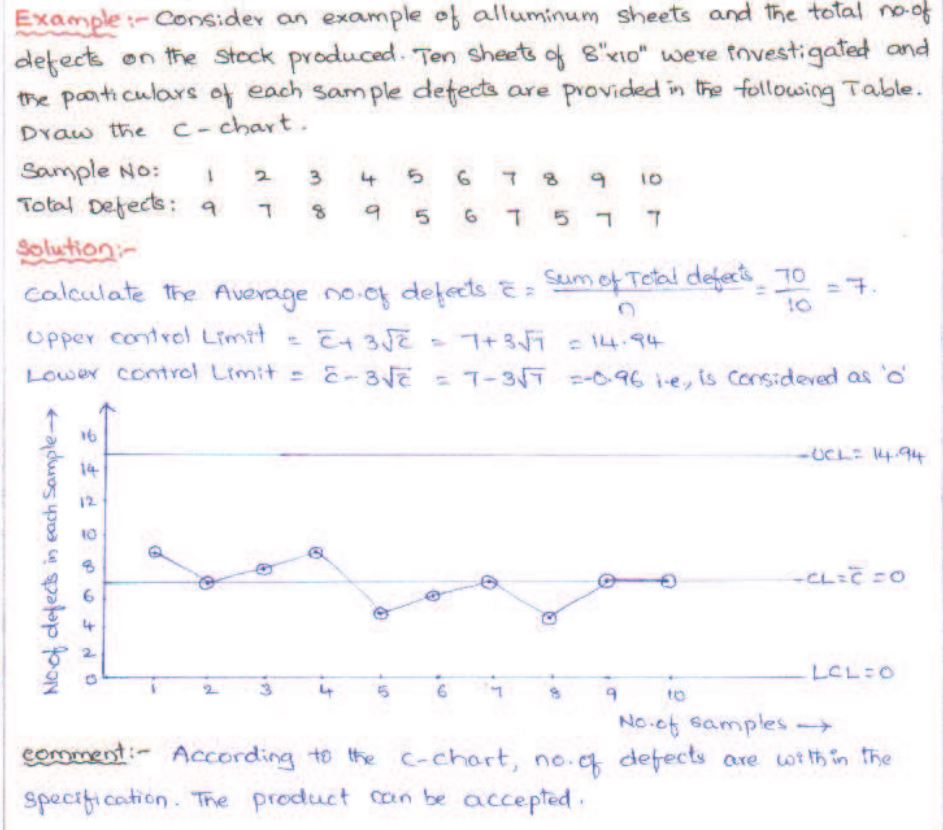 Example:- Consider an example of alluminum sheets and the total no.of
defects on the stock produced. Ten sheets of 8"x10" were investigated and
the particulars of each sample defects are provided in the following Table.
Draw the C-chart.
Sample No: 1 2 3 4 5 6 7 8 9 10
Total Defects: 9 7 8 9 5 6 7 5 7 7
Solution:-
Calculate the Average no.of defects c̄ = Sum of Total defects/n = 70/10 = 7.
Upper control Limit = c̄ + 3√c̄ = 7+3√7 = 14.94
Lower control Limit = c̄ - 3√c̄ = 7-3√7 = -0.96 i.e., is considered as '0'
No.of defects in each sample →
16
14
12
10
8
6
4
2
0
UCL = 14.94
CL = c̄ = 0
LCL = 0
1 2 3 4 5 6 7 8 9 10
No.of samples →
comment:- According to the c-chart, no.of defects are within the
specification. The product can be accepted.